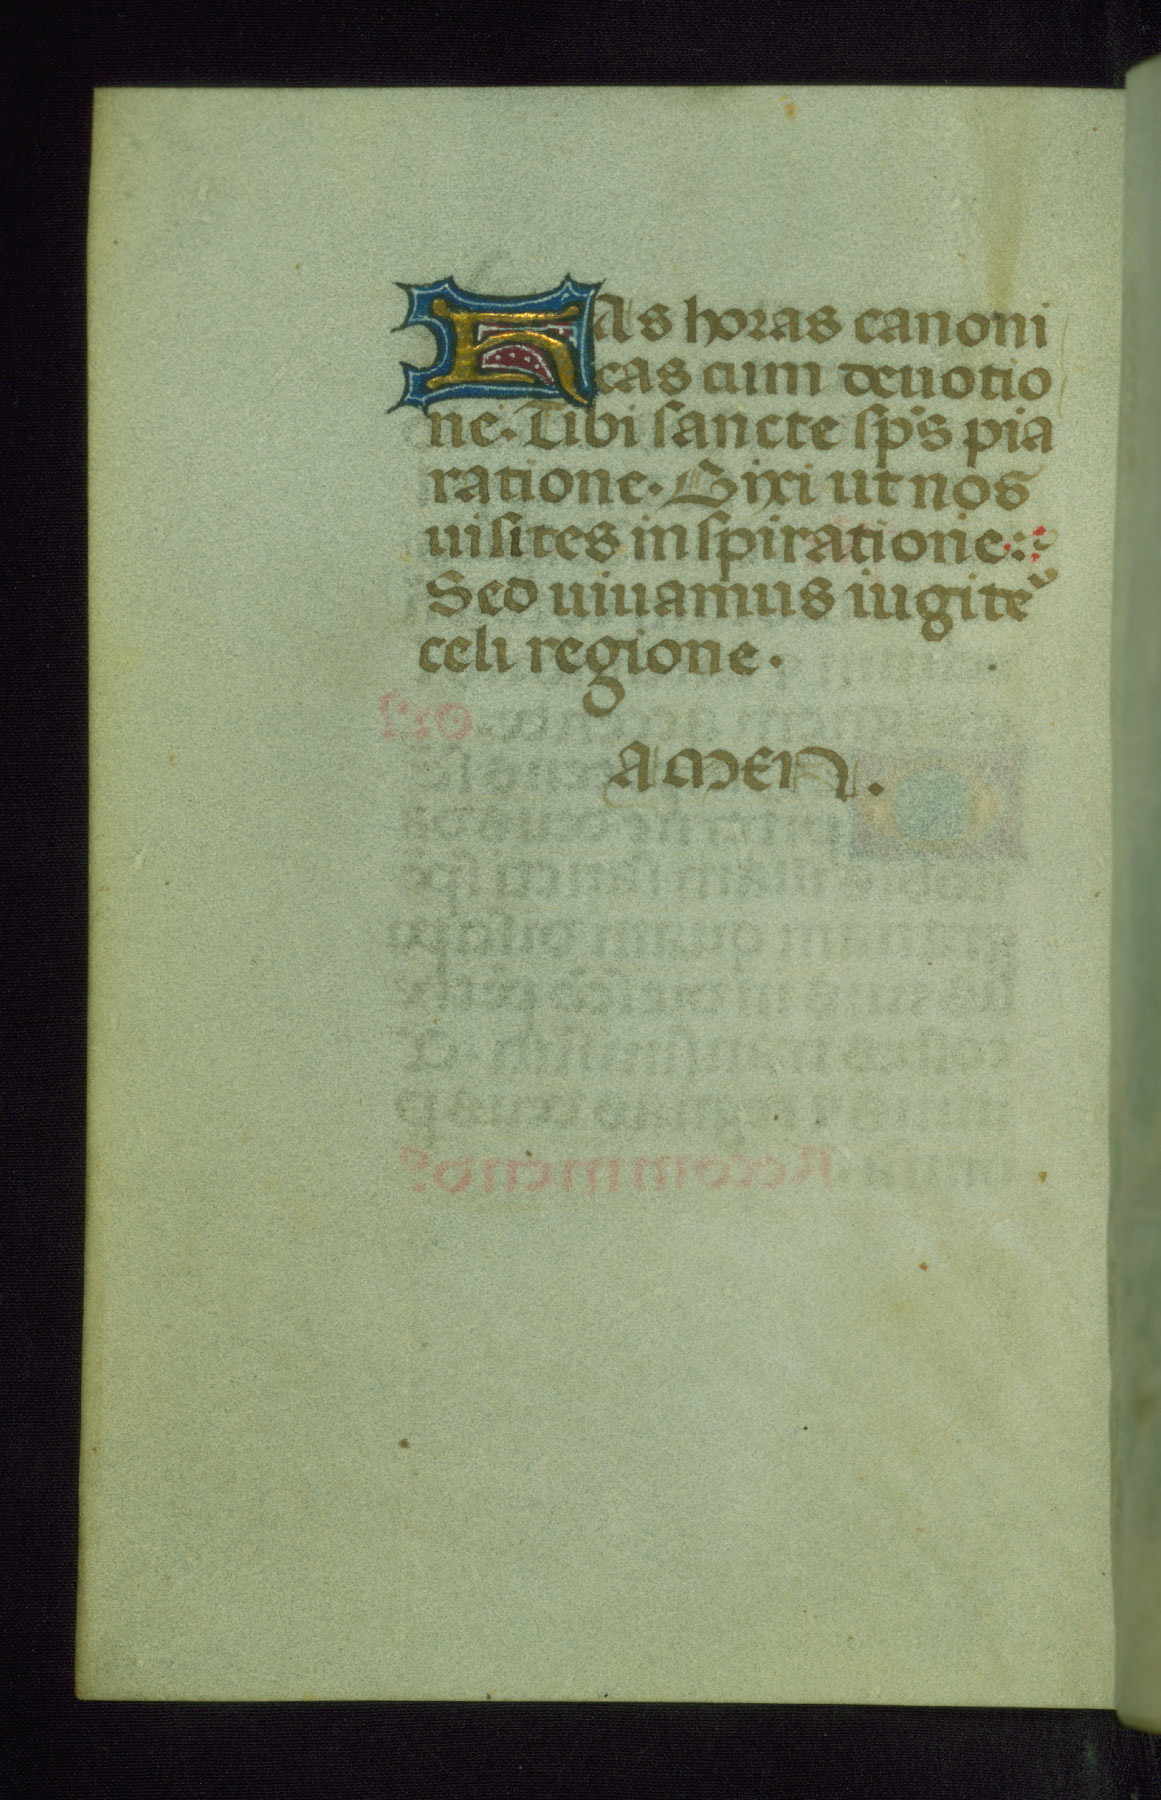 Has horas canoni
cas cum deuotio
ne. Tibi sancte sp̄s pia
ratione. Dixi ut nos
uisites inspiratione:
Sed uiuamus iugite᷑
celi regione.
AMEN.